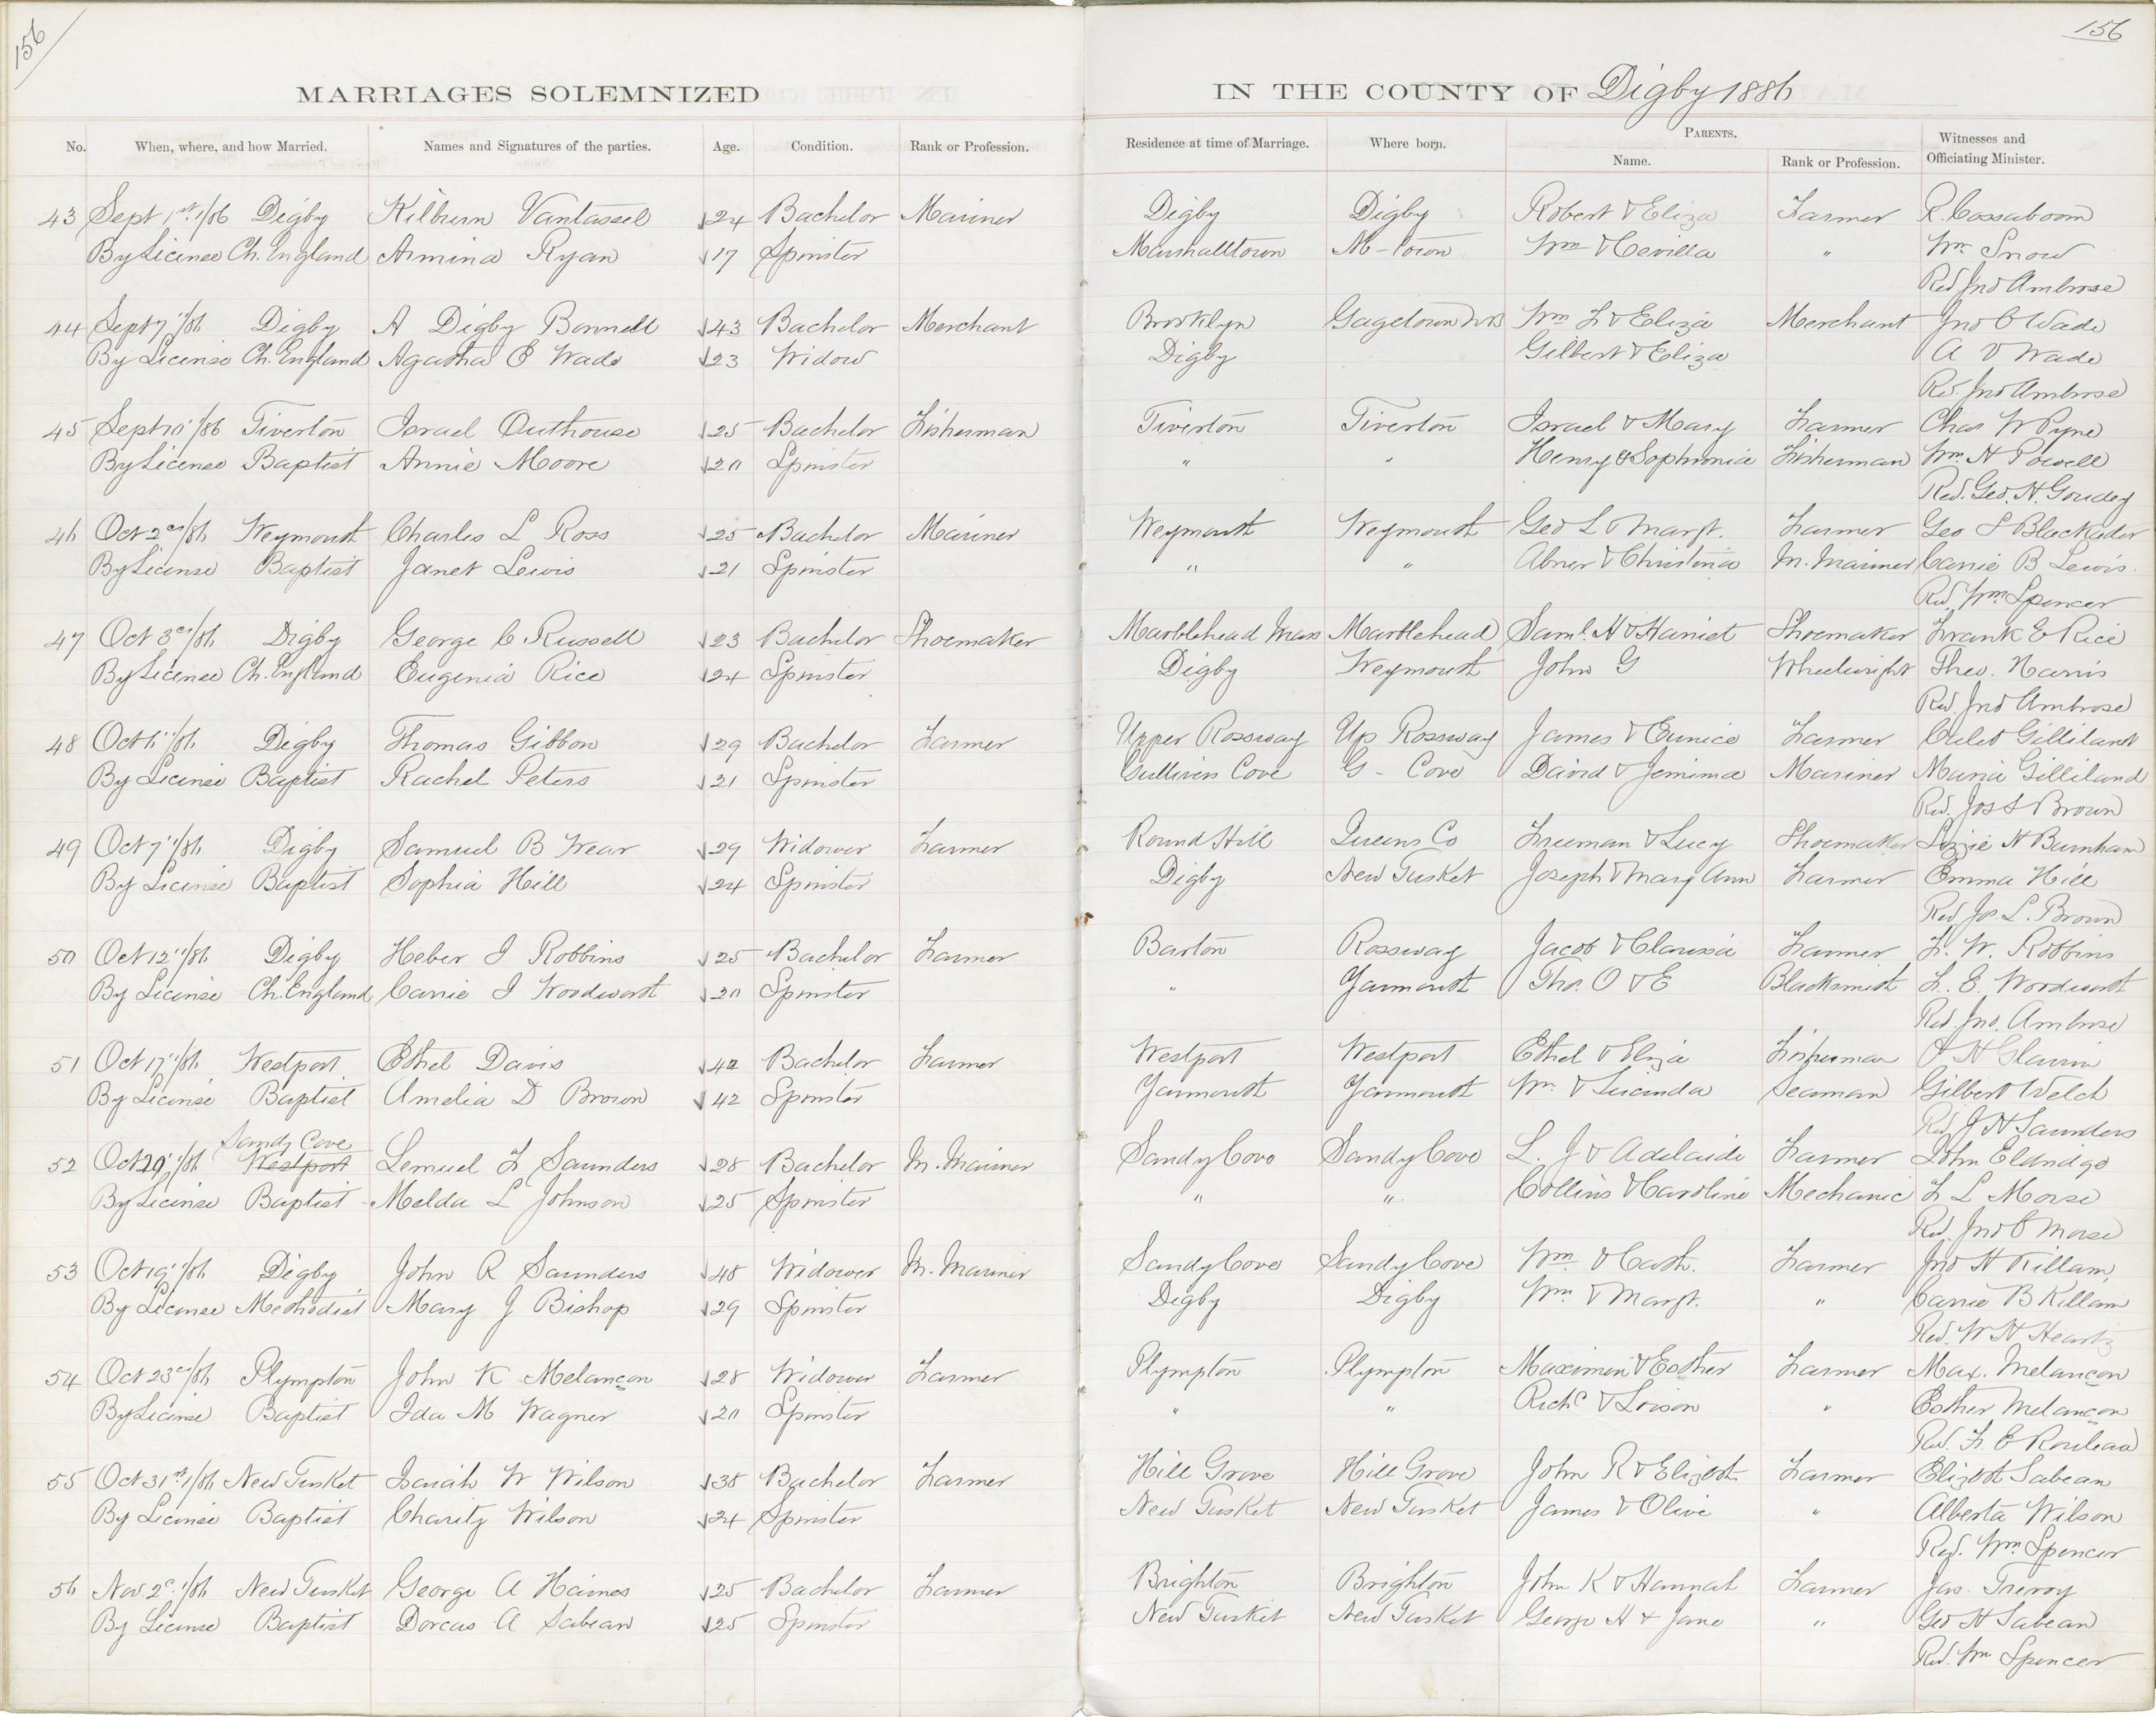 156
156
MARRIAGES SOLEMNIZED IN THE COUNTY OF Digby 1886
No. When, where, and how Married. Names and Signatures of the parties. Age. Condition. Rank or Profession. Residence at time of Marriage. Where born. PARENTS. Name. Rank or Profession. Witnesses and Officiating Minister.
43 Sept 1st /86 Digby Kilburn Vantassel 24 Bachelor Mariner Digby Digby Robert & Eliza Farmer R. Cossaboom
By License Ch. England Armina Ryan 17 Spinster Marshalltown M-town Wm & Cevilla " Wm Snow
Rev Jno Ambrose
44 Sept 7"/86 Digby A Digby Bonnell 43 Bachelor Merchant Brooklyn Gagetown NB Wm F & Eliza Merchant Jno C Wade
By License Ch. England Agatha E Wade 23 Widow Digby Gilbert & Eliza A V Wade
Rev. Jno Ambrose
45 Sept 10"/86 Tiverton Israel Outhouse 25 Bachelor Fisherman Tiverton Tiverton Israel & Mary Farmer Chas W Pyne
By License Baptist Annie Moore 20 Spinster " " Henry & Sophronia Fisherman Wm H Powell
Rev. Geo. H. Goudey
46 Oct 2nd/86 Weymouth Charles L Ross 25 Bachelor Mariner Weymouth Weymouth Geo L & Margt. Farmer Geo S Blackader
By License Baptist Janet Lewis 21 Spinster " " Abner & Christina M. Mariner Carrie B Lewis
Rev Wm Spencer
47 Oct 3rd/86 Digby George C Russell 23 Bachelor Shoemaker Marblehead Mass Marblehead Saml. H & Harriet Shoemaker Frank E Rice
By License Ch. England Eugenia Rice 24 Spinster Digby Weymouth John G Wheelwright Theo. Harris
Rev. Jno Ambrose
48 Oct 6"/86 Digby Thomas Gibbon 29 Bachelor Farmer Upper Rossway Up Rossway James & Eunice Farmer Caleb Gilliland
By License Baptist Rachel Peters 21 Spinster Gullivers Cove G - Cove David & Jemima Mariner Maria Gilliland
Rev. Jos S Brown
49 Oct 7"/86 Digby Samuel B Wear 29 Widower Farmer Round Hill Queens Co Freeman & Lucy Shoemaker Lizzie H Burnham
By License Baptist Sophia Hill 24 Spinster Digby New Tusket Joseph & Mary Ann Farmer Emma Hill
Rev Jos. L. Brown
50 Oct 12"/86 Digby Heber I Robbins 25 Bachelor Farmer Barton Rossway Jacob & Clarissa Farmer F. W. Robbins
By License Ch. England Carrie I Woodworth 20 Spinster " Yarmouth Thos. O & E Blacksmith L. E. Woodworth
Rev. Jno. Ambrose
51 Oct 17"/86 Westport Ethel Davis 42 Bachelor Farmer Westport Westport Ethel & Eliza Fisherman
By License Baptist Amelia D Brown 42 Spinster Yarmouth Yarmouth Wm. & Lucinda Seaman Gilbert Welch
Rev J H Saunders
Sandy Cove
52 Oct 20"/86 Westport Lemuel F Saunders 28 Bachelor M. Mariner Sandy Cove Sandy Cove L. J & Adelaide Farmer John Eldridge
By License Baptist Melda L Johnson 25 Spinster " " Collins & Caroline Mechanic F L Morse
Rev. Jno C Morse
53 Oct 19"/86 Digby John R Saunders 48 Widower M. Mariner Sandy Cove Sandy Cove Wm. & Cath. Farmer Jno H Killam
By License Methodist Mary J Bishop 29 Spinster Digby Digby Wm. & Margt. " Carrie B Killam
Rev. W H Heartz
54 Oct 23rd/86 Plympton John K Melancon 28 Widower Farmer Plympton Plympton Maximin & Esther Farmer Max. Melancon
By License Baptist Ida M Wagner 20 Spinster " " Richd & Loison " Esther Melancon
Rev. F. E Rouleau
55 Oct 31st/86 New Tusket Isaiah W Wilson 38 Bachelor Farmer Hill Grove Hill Grove John R & Elizbth. Farmer Elizbth Sabean
By License Baptist Charity Wilson 24 Spinster New Tusket New Tusket James & Olive " Alberta Wilson
Rev. Wm Spencer
56 Nov. 2d/86 New Tusket George A Haines 25 Bachelor Farmer Brighton Brighton John K & Hannah Farmer Jas.
By License Baptist Dorcas A Sabean 25 Spinster New Tusket New Tusket George H & Jane " Geo H Sabean
Rev. Wm Spencer